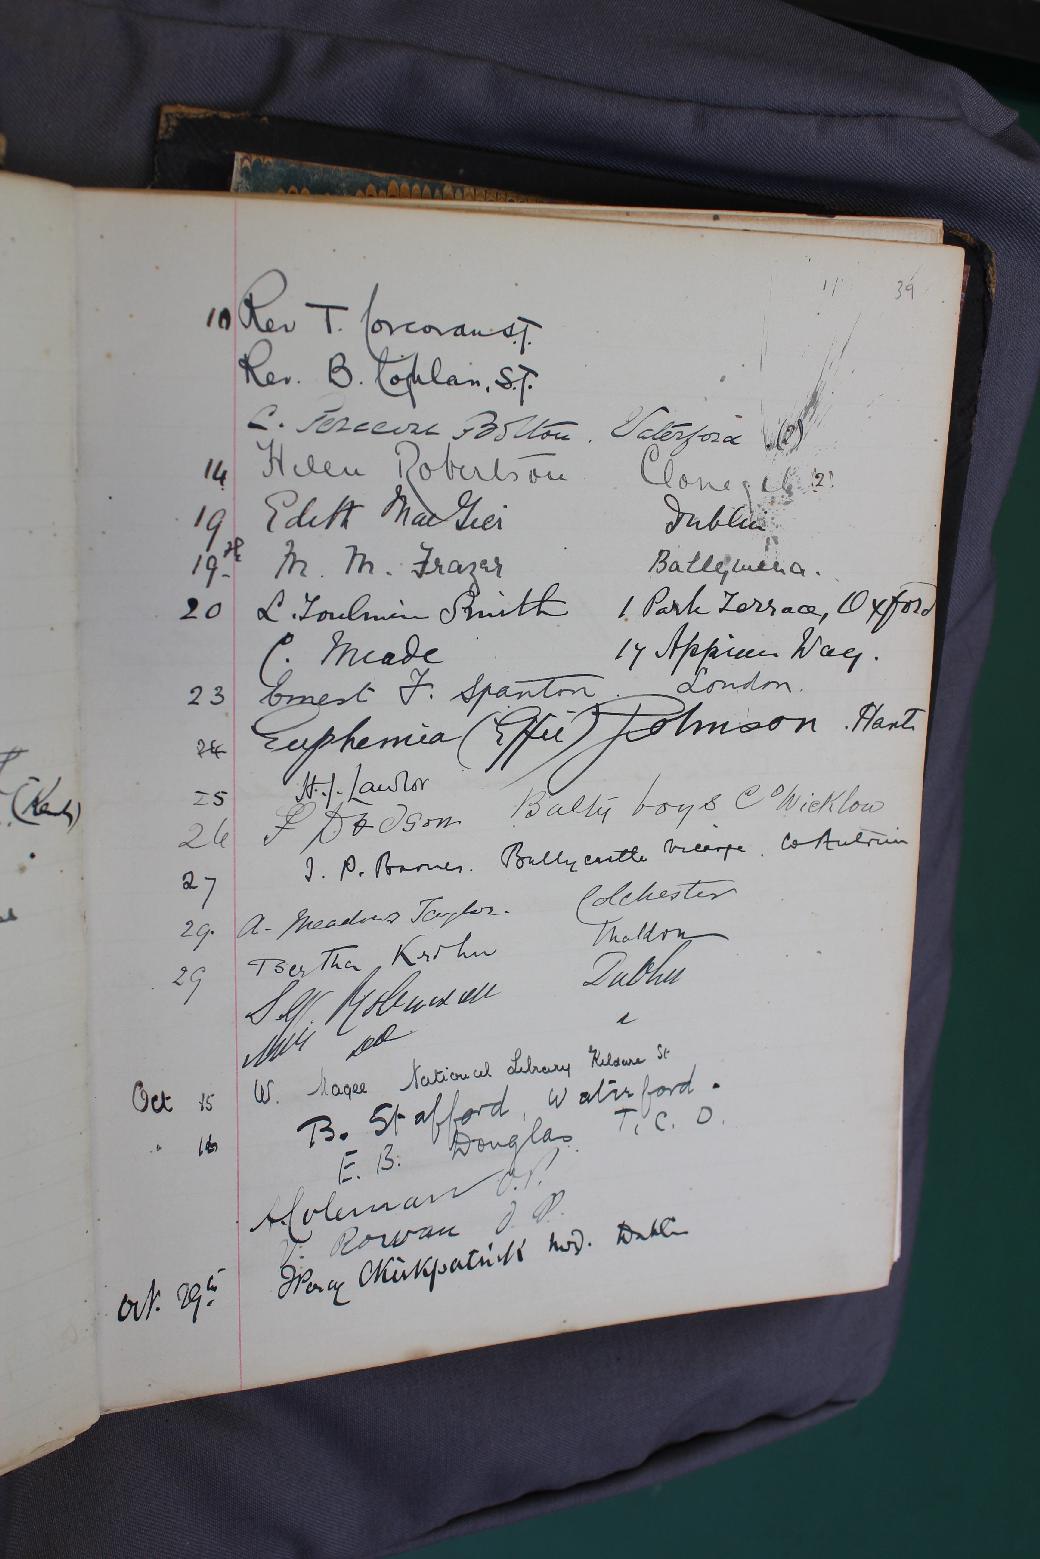 39
10 Rev T. Corcoran S.J.
Rev. B. Coghlan, S.J.
L. Bolton. Waterford (2)
14 Helen Robertson Clonegal (2)
19 Edith MacGeer Dublin
19th M. M. Frazer Ballymena.
20 L. Toulmin Smith 1 Park Terrace, Oxford
C. Meade 17 Appian Way.
23 Ernest F. Spanton. London.
24 Euphemia (Effie) Johnson. Hants
25 H. J. Lawlor
26 F Dodson Ballyboys Co Wicklow
27 J. P. Barnes. Ballycastle Co Antrim
29. A. Meadows Taylor. Colchester
29 Bertha Krohn Maldon
Robinson Dublin
do "
Oct 15 W. Magee National Library Kildare St
" 16 B. Stafford, Waterford.
E. B. Douglas T. C. D.
A. Coleman O.P.
Rowan O.P.
Oct. 29th T Percy C Kirkpatrick M.D. Dublin
(Kent)